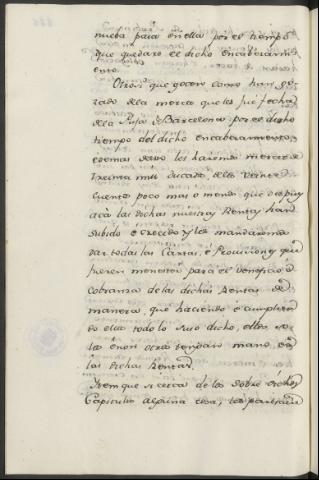 nueba para en ella por el tiempo
que quedaro el dicho encabezami
ento.
Otrosi que gocen como han go
zado dela merced que les fue fecha
dela de Barcelona por el dicho
tiempo del dicho encabezamiento,
e demas desto les hazemos merced de
treinta mil ducados delos veinte
cuento poco mas o menos que despues
acà las dichas nuestras Rentas han
subido è crecido y les mandaremos
dar todas las Cartas, è Provisiones que
fueren menester para el beneficio è
cobranza de las dichas Rentas de
manera, que haciendo è cumplien
do ellos todo lo suso dicho, ellos so
las è non otro tengan mano en
las dichas Rentas.
Ytem que si cerca de los sobre dichos
Capitulos alguna cosa, les pareciere